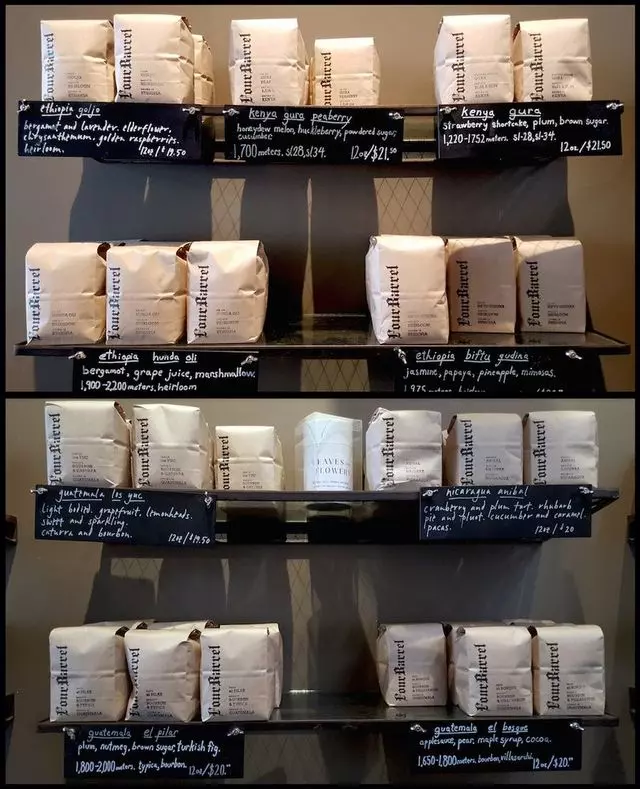 FourBarrel
FourBarrel
FourBarrel
FourBarrel
FourBarrel
FourBarrel
ethiopia goljo
bergamot and lavender. elderflower.
chrysanthemum. golden raspberries.
heirloom.
12oz/$19.50
kenya gura peaberry
honeydew melon, huckleberry, powdered sugar,
cucumber.
1,700 meters. sl28, sl34.
12oz/$21.50
kenya gura
strawberry shortcake, plum, brown sugar.
1,220-1752 meters. sl-28, sl-34.
12oz/$21.50
FourBarrel
FourBarrel
FourBarrel
FourBarrel
FourBarrel
FourBarrel
ethiopia hunda oli
bergamot, grape juice, marshmallow.
1,900-2,200 meters, heirloom
ethiopia biftu gudina
jasmine, papaya, pineapple, mimosas.
FourBarrel
FourBarrel
FourBarrel
FourBarrel
FourBarrel
FourBarrel
guatemala los yuc
light bodied. grapefruit. lemonheads.
sweet and sparkling.
caturra and bourbon.
12oz/$19.50
nicaragua anibal
cranberry and plum tart. rhubarb
pie and pluot. cucumber and caramel.
pacas.
12oz/$20
FourBarrel
FourBarrel
FourBarrel
FourBarrel
FourBarrel
FourBarrel
guatemala el pilar
plum, nutmeg, brown sugar, turkish fig.
1,800-2,000 meters. typica, bourbon.
12oz/$20.
guatemala el bosque
applesauce, pear, maple syrup, cocoa.
1,650-1,800 meters, bourbon, villasarchi.
12oz/$20.